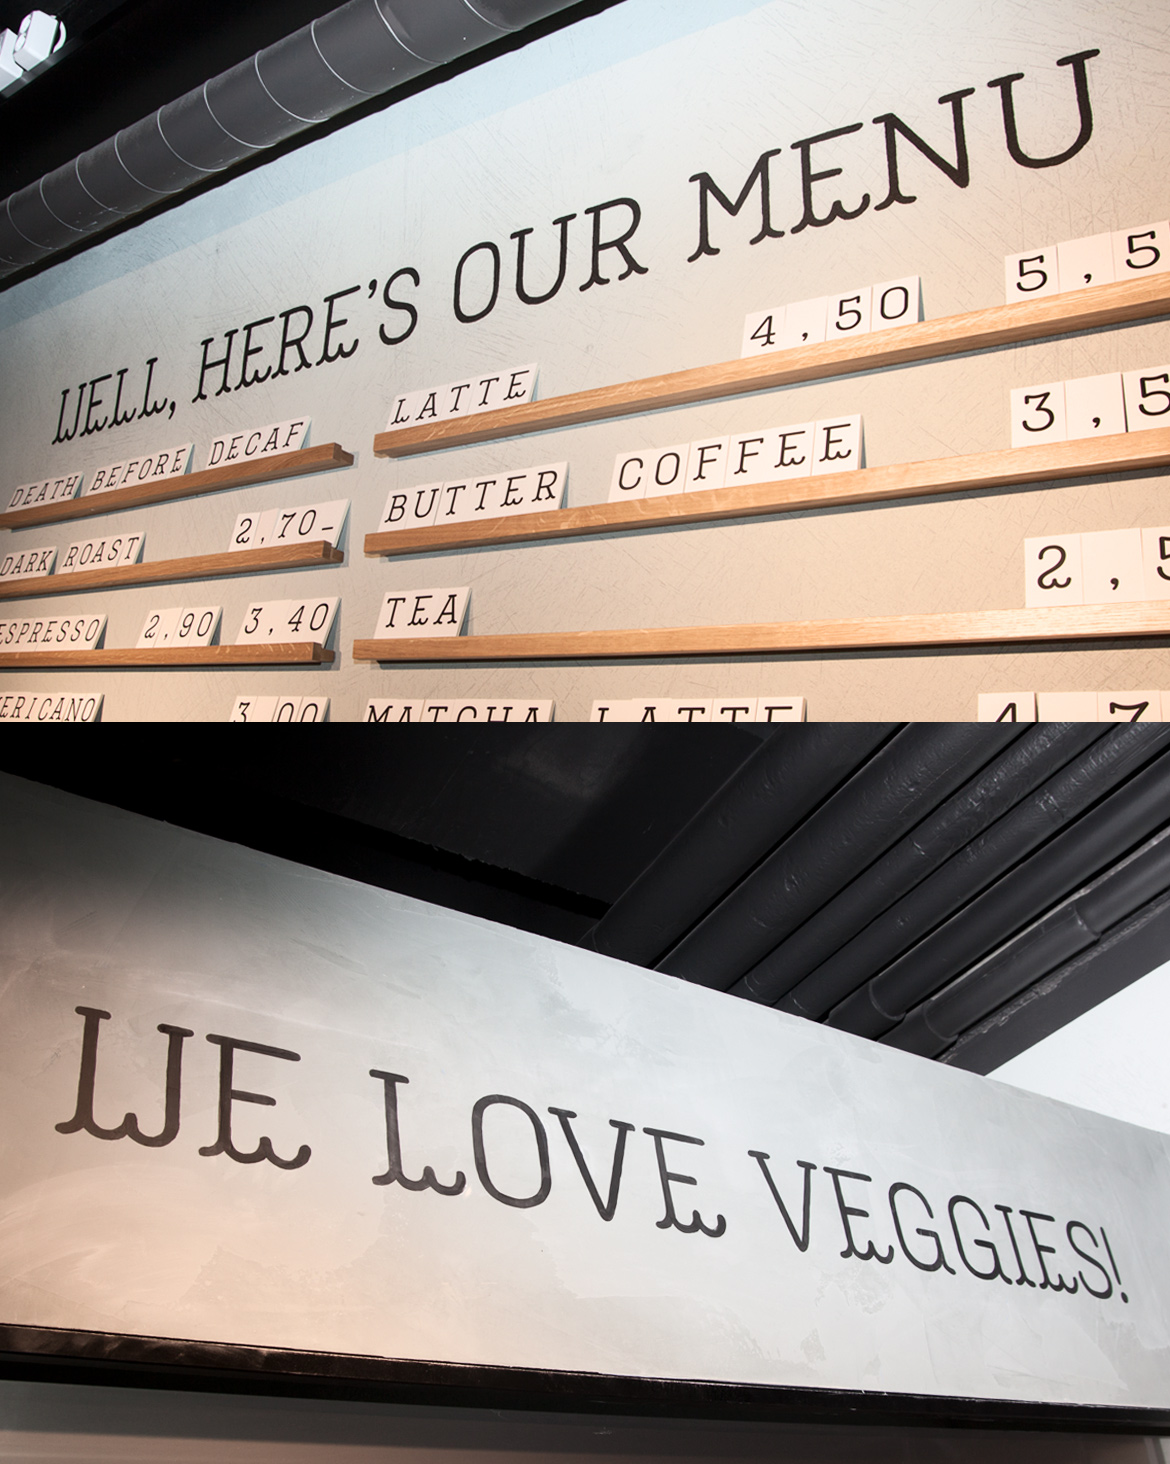 WELL, HERE'S OUR MENU
DEATH BEFORE DECAF
DARK ROAST 2,70-
ESPRESSO 2,90 3,40
LATTE 4,50 5,5
BUTTER COFFEE 3,5
TEA 2,5
3,00
MATCHA LATTE 4 7
WE LOVE VEGGIES!